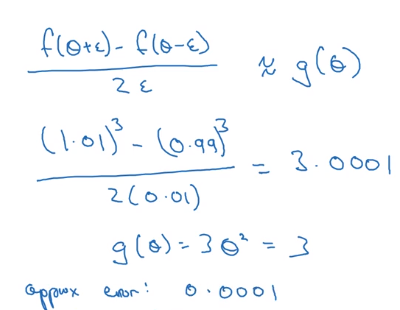 f(θ+ε) - f(θ-ε) / 2ε ≈ g(θ)
(1.01)³ - (0.99)³ / 2(0.01) = 3.0001
g(θ) = 3θ² = 3
approx error: 0.0001